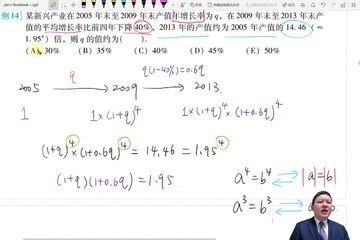 Jian's Notebook
例14】某新兴产业在 2005 年末至 2009 年末产值年增长率为 q，在 2009 年末至 2013 年末产
值的平均增长率比前四年下降 40%，2013 年的产值约为 2005 年产值的 14.46（≈
1.95⁴）倍，则 q 的值约为（  ）.
(A) 30% (B) 35% (C) 40% (D) 45% (E) 50%
q q(1-40%)=0.6q
2005 2009 2013
1 1×(1+q)⁴ 1×(1+q)⁴×(1+0.6q)⁴
(1+q)⁴×(1+0.6q)⁴=14.46=1.95⁴
(1+q)(1+0.6q)=1.95
a⁴=b⁴ |a|=|b|
a³=b³